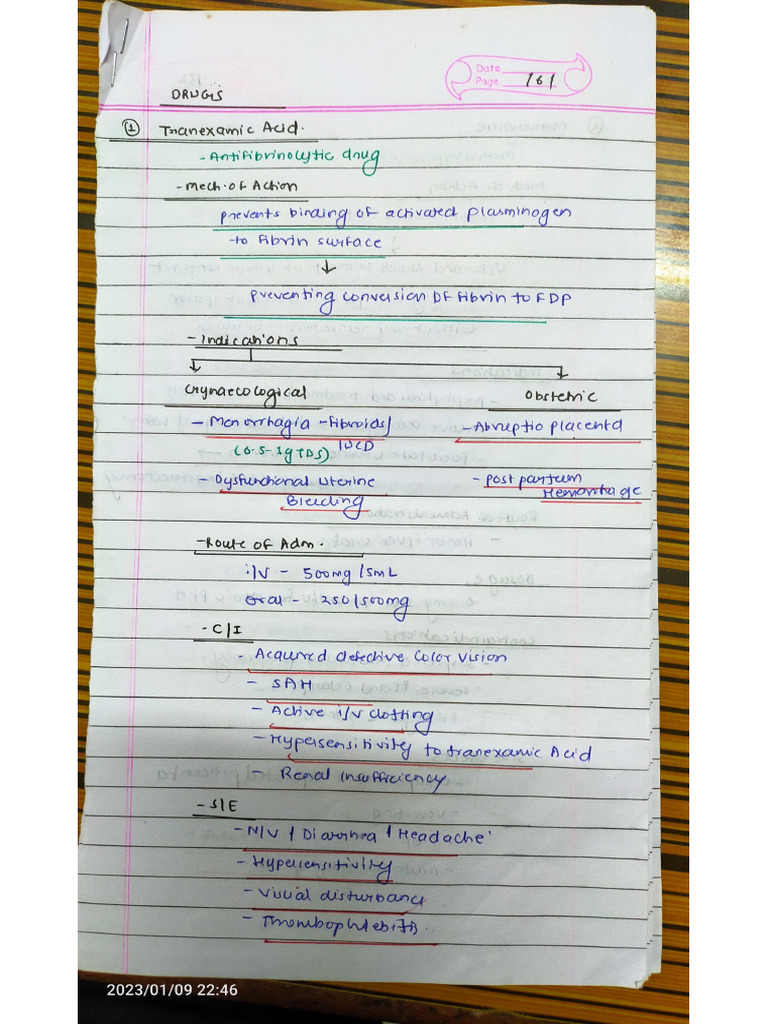 Date
Page 161
DRUGS
① Tranexamic Acid.
- Antifibrinolytic drug
- Mech. of Action
prevents binding of activated plasminogen
to fibrin surface
↓
preventing conversion of fibrin to FDP
- Indications
Gynaecological
Obstetric
- Menorrhagia - Fibroids/
IUCD
- Abruptio placenta
(0.5-1g TDS)
- Dysfunctional Uterine
Bleeding
- Post partum
Hemorrhage
- Route of Adm.
i/v - 500mg/5mL
Oral - 250/500mg
- C/I
- Acquired defective Color Vision
- SAH
- Active i/v clotting
- Hypersensitivity to tranexamic Acid
- Renal insufficiency
- S/E
- N/V / Diarrhea / Headache
- Hypersensitivity
- Visual disturbance
- Thrombophlebitis.
2023/01/09 22:46